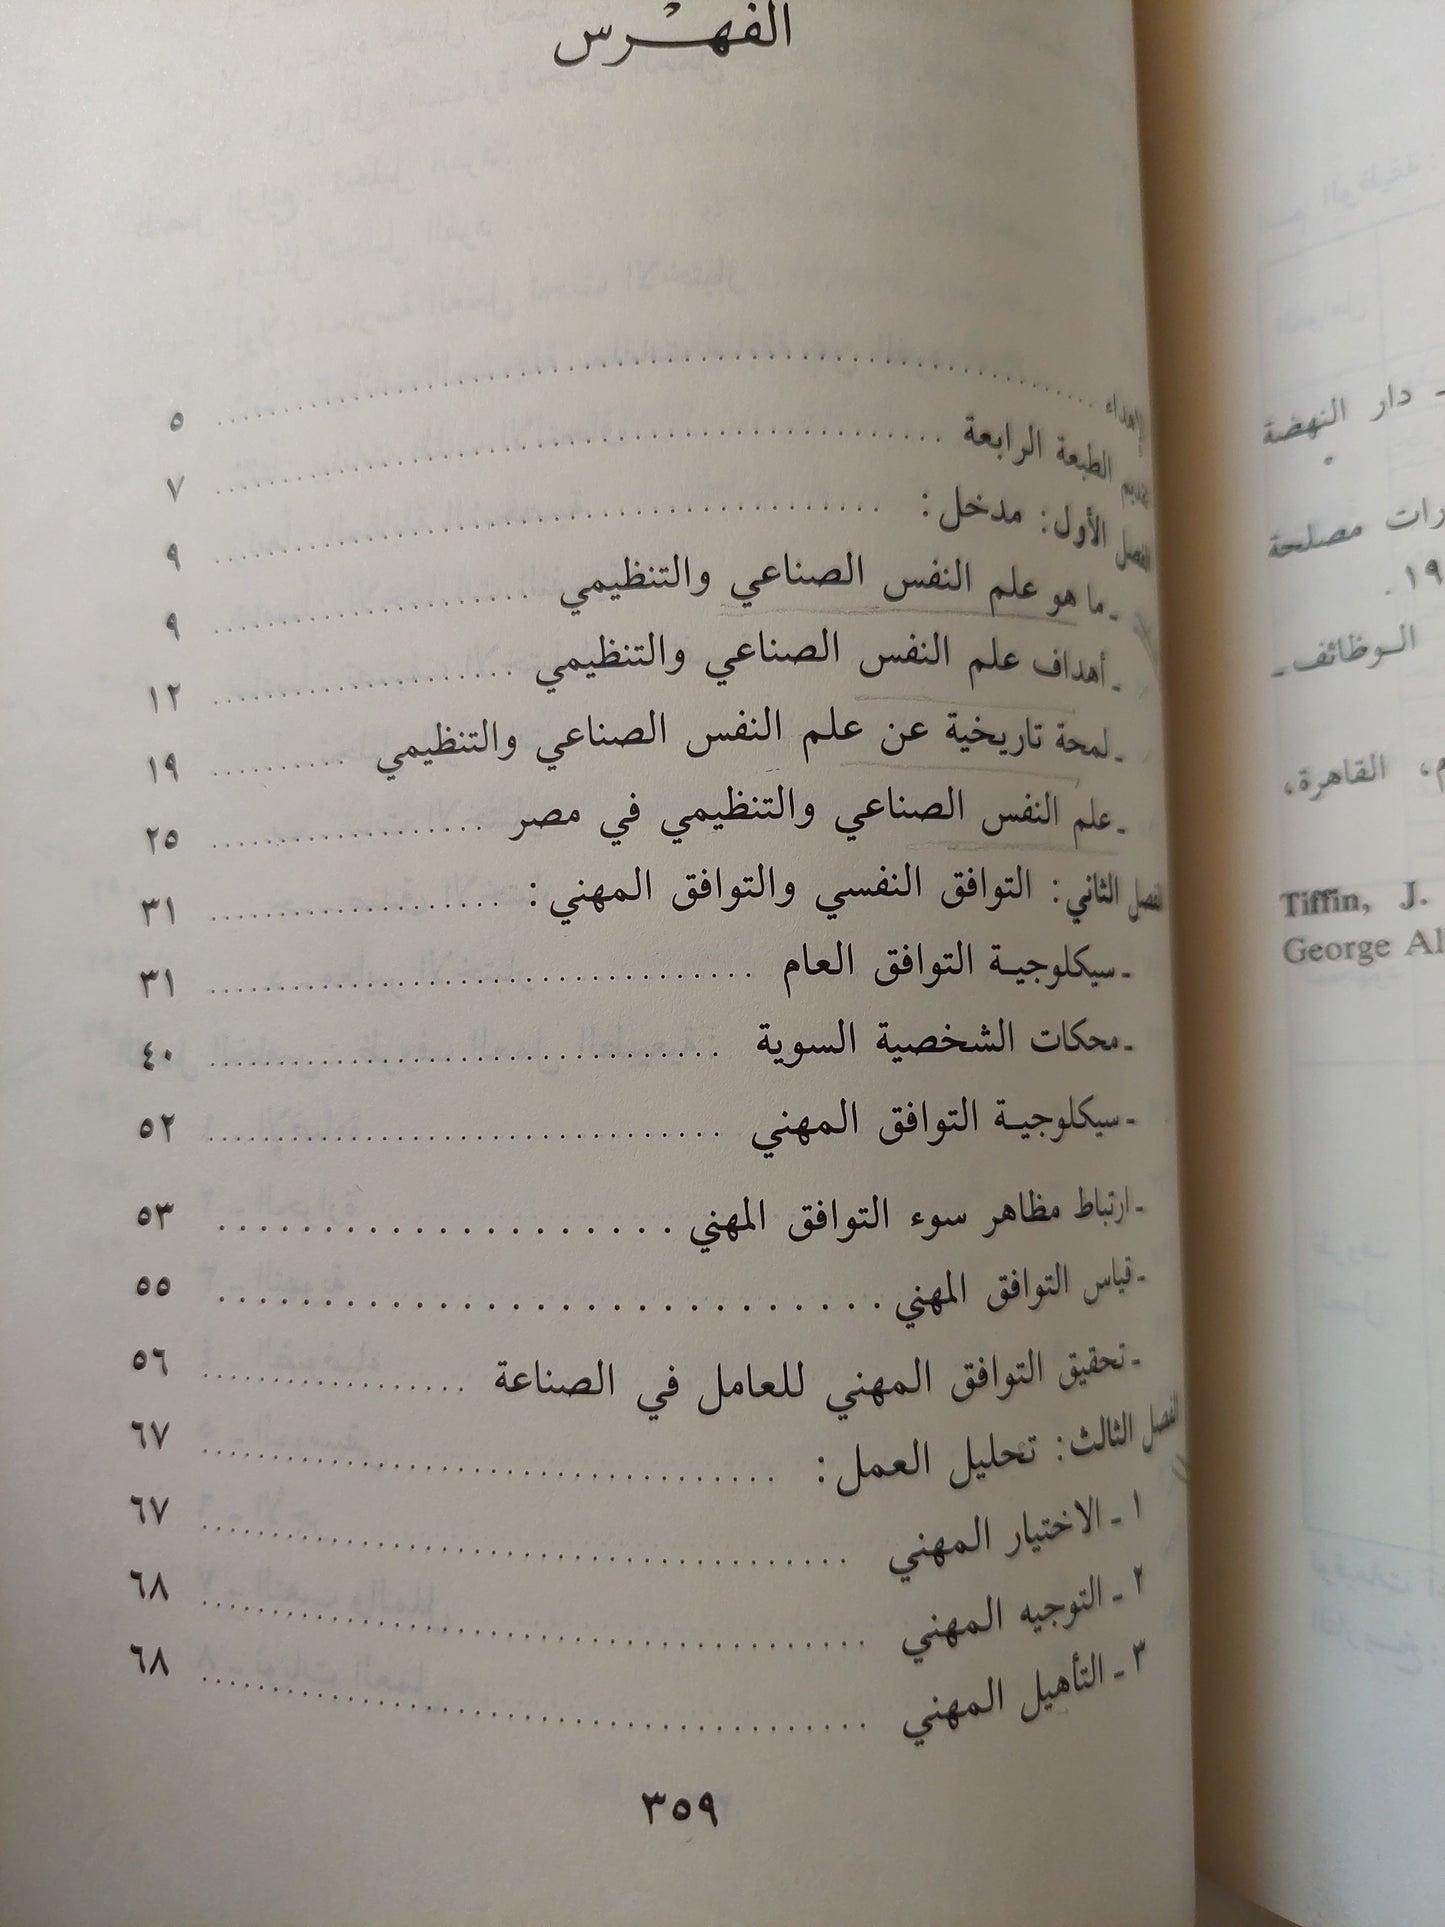 الفهرس
الإهداء ........ ٥
تقديم الطبعة الرابعة ........ ٧
الفصل الأول: مدخل: ........ ٩
ـ ما هو علم النفس الصناعي والتنظيمي ........ ٩
ـ أهداف علم النفس الصناعي والتنظيمي ........ ١٢
ـ لمحة تاريخية عن علم النفس الصناعي والتنظيمي ........ ١٩
ـ علم النفس الصناعي والتنظيمي في مصر ........ ٢٥
الفصل الثاني: التوافق النفسي والتوافق المهني: ........ ٣١
ـ سيكلوجية التوافق العام ........ ٣١
ـ محكات الشخصية السوية ........ ٤٠
ـ سيكلوجية التوافق المهني ........ ٥٢
ـ ارتباط مظاهر سوء التوافق المهني ........ ٥٣
ـ قياس التوافق المهني ........ ٥٥
ـ تحقيق التوافق المهني للعامل في الصناعة ........ ٥٦
الفصل الثالث: تحليل العمل: ........ ٦٧
١ ـ الاختيار المهني ........ ٦٧
٢ ـ التوجيه المهني ........ ٦٨
٣ ـ التأهيل المهني ........ ٦٨
٣٥٩
ـ دار النهضة
مصلحة
الوظائف ـ
القاهرة،
Tiffin, J.
George